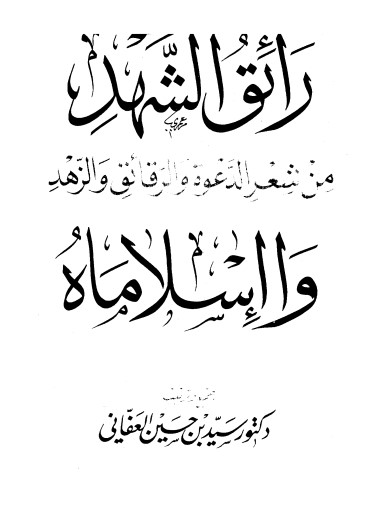 رَائِقُ الشَّهْدِ
مِنْ شِعْرِ الدَّعْوَةِ وَالرَّقَائِقِ وَالزُّهْدِ
وَا إِسْلَامَاهُ
دكتور سَيِّد بْن حُسَيْن العَفَّانِي